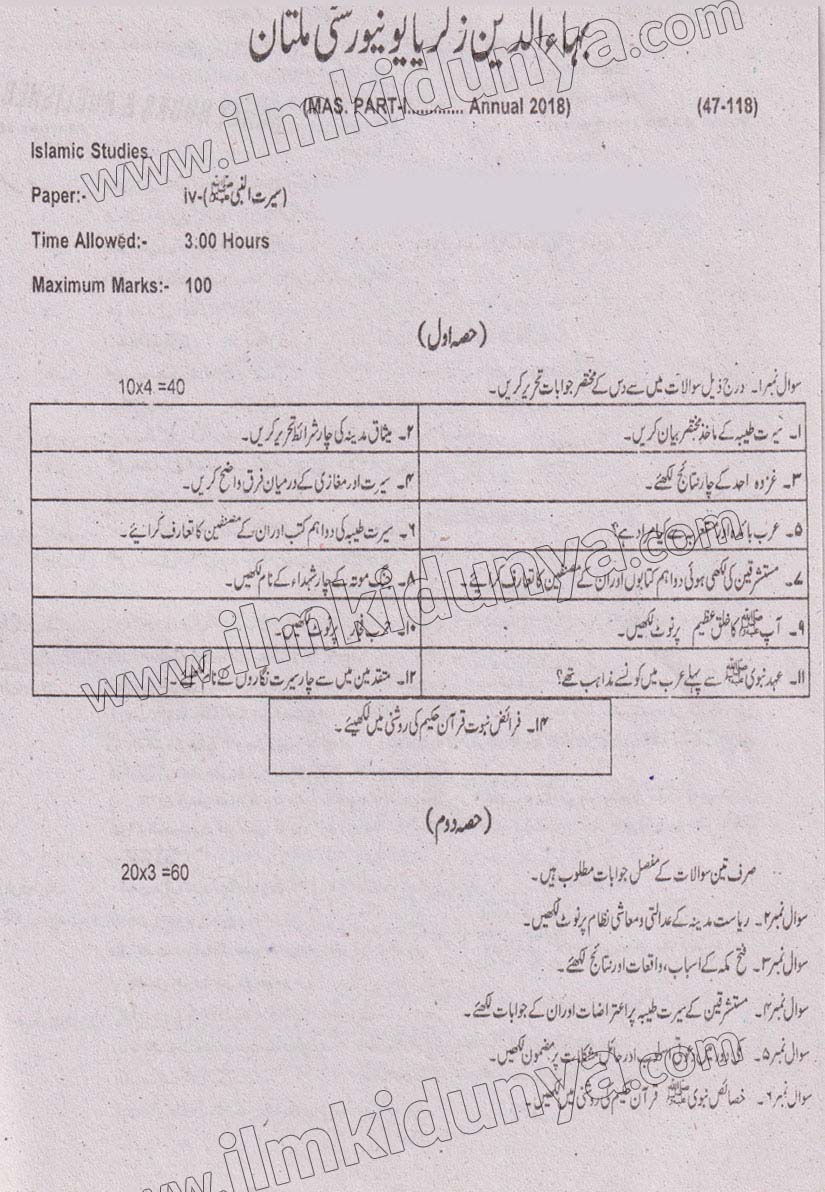 بہاءالدین زکریا یونیورسٹی ملتان
(MAS. PART-I............ Annual 2018) (47-118)
Islamic Studies.
Paper:- iv-(سیرت النبی ﷺ)
Time Allowed:- 3:00 Hours
Maximum Marks:- 100
(حصہ اول)
سوال نمبر ۱۔ درج ذیل سوالات میں سے دس کے مختصر جوابات تحریر کریں۔ 10x4 =40
۱۔ سیرت طیبہ کے ماخذ مختصر بیان کریں۔ ۲۔ میثاق مدینہ کی چار شرائط تحریر کریں۔
۳۔ غزوہ احد کے چار نتائج لکھئے۔ ۴۔ سیرت اور مغازی کے درمیان فرق واضح کریں۔
۵۔ عرب بائدہ اور سے کیا مراد ہے؟ ۶۔ سیرت طیبہ کی دو اہم کتب اور ان کے مصنفین کا تعارف کرائیے۔
۷۔ مستشرقین کی لکھی ہوئی دو اہم کتابوں اور ان کے مصنفین کا تعارف کرائیے۔ ۸۔ جنگ موتہ کے چار شہداء کے نام لکھیں۔
۹۔ آپ ﷺ کا خلق عظیم پر نوٹ لکھیں۔ ۱۰۔ حرب فجار پر نوٹ لکھیں۔
۱۱۔ عہد نبوی ﷺ سے پہلے عرب میں کونسے مذاہب تھے؟ ۱۲۔ متقدمین میں سے چار سیرت نگاروں کے نام لکھئے۔
۱۴۔ فرائض نبوت قرآن حکیم کی روشنی میں لکھیئے۔
(حصہ دوم)
صرف تین سوالات کے مفصل جوابات مطلوب ہیں۔ 20x3 =60
سوال نمبر ۲۔ ریاست مدینہ کے عدالتی و معاشی نظام پر نوٹ لکھیں۔
سوال نمبر ۳۔ فتح مکہ کے اسباب، واقعات اور نتائج لکھئے۔
سوال نمبر ۴۔ مستشرقین کے سیرت طیبہ پر اعتراضات اور ان کے جوابات لکھئے۔
سوال نمبر ۵۔ مکی دور میں دعوتی اسلوب اور حائل مشکلات پر مضمون لکھیں۔
سوال نمبر ۶۔ خصائص نبوی ﷺ قرآن حکیم کی روشنی میں لکھیں۔
www.ilmkidunya.com
www.ilmkidunya.com
www.ilmkidunya.com